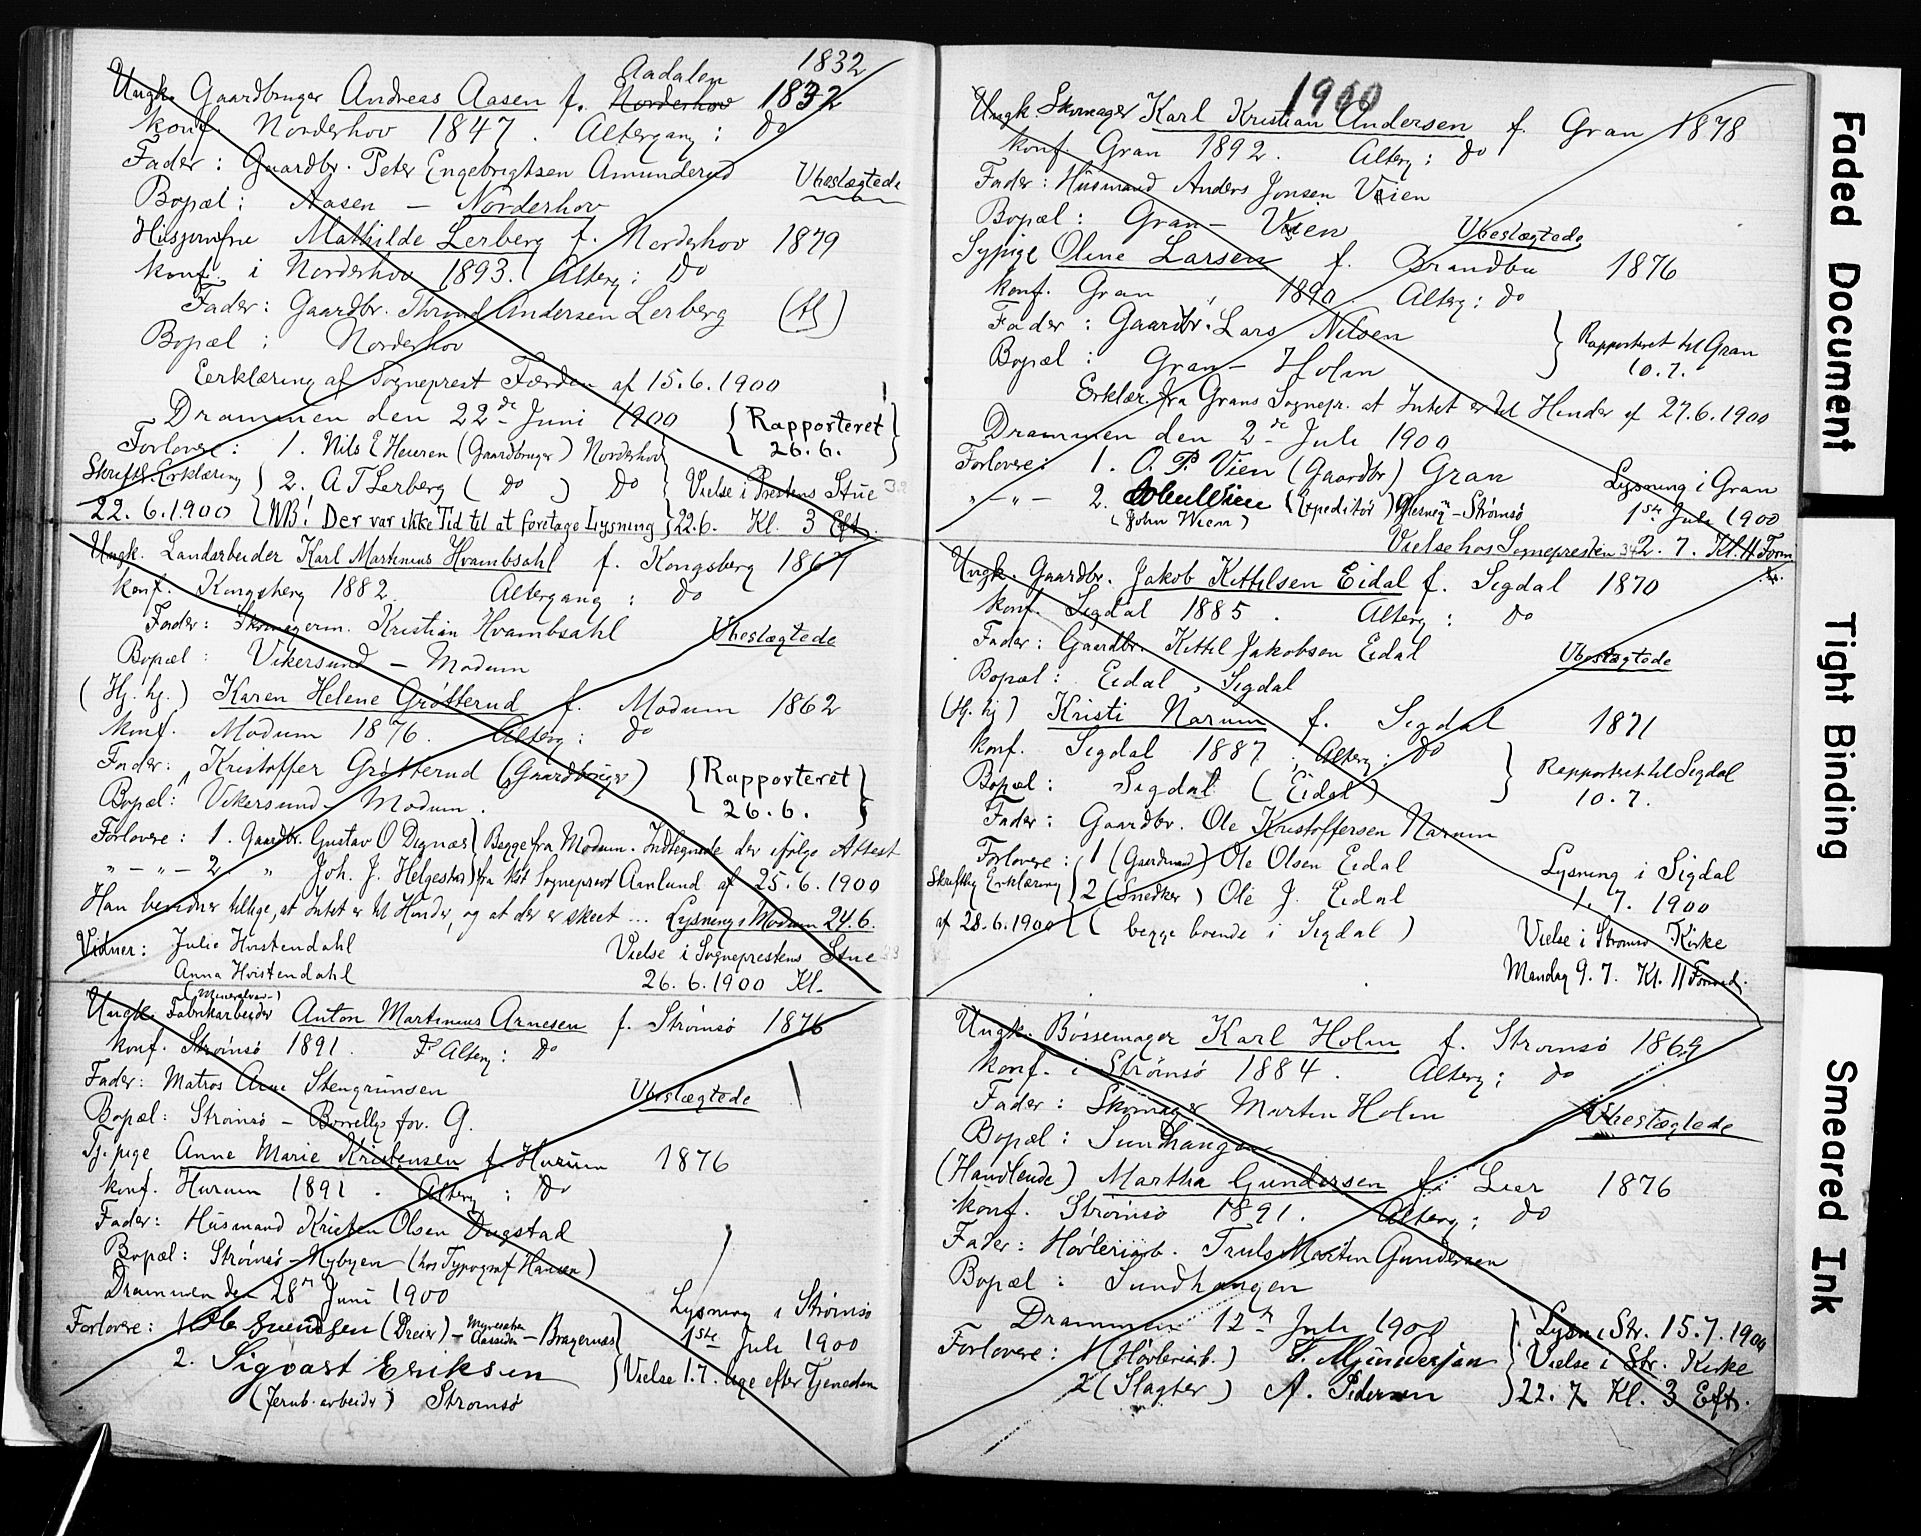 1832
Aadalen
Ungk. Gaardbruger Andreas Aasen f. Norderhov 1832
konf. Norderhov 1847. Altergang: do
Fader: Gaardbr. Peter Engebrigtsen Amunderud
Ubeslægtede
Bopæl: Aasen – Norderhov
Husjomfrue Mathilde Lerberg f. Norderhov 1879
konf. i Norderhov 1893. Alterg: do
Fader: Gaardbr. Thrond Andersen Lerberg
Bopæl: Norderhov
Eerklæring af Sogneprest Færden af 15.6.1900
Drammen den 22de Juni 1900
{Rapporteret
26.6.}
Forlovere: 1. Nils E Heieren (Gaardbruger) Norderhov
Skriftl. Erklæring } 2. A T Lerberg (do) do } Vielse i Prestens Stue
22.6.1900 {NB! Der var ikke Tid til at foretage Lysning} 22.6. Kl. 3 Eft.
Ungk. Landarbeider Karl Martinius Hvambsahl f. Kongsberg 1867
konf. Kongsberg 1882. Altergang: do
Fader: Skomagerm. Kristian Hvambsahl Ubeslægtede
Bopæl: Vikersund – Modum
(Hj. hj.) Karen Helene Grøtterud f. Modum 1862
konf. Modum 1876. Alterg: do
Fader: Kristoffer Grøtterud (Gaardbruger)
{Rapporteret
26.6.}
Bopæl: Vikersund – Modum.
Forlovere: 1. Gaardbr. Gustav O Dignæs } Begge fra Modum. Indtegnede der ifølge Attest
" – " – 2. " Joh. J. Helgestad } fra kst Sogneprest Amlund af 25.6.1900
Han bevidner tillige, at Intet er til Hinder, og at der er skeet ... Lysning i Modum 24.6.
Vidner: Julie Hvistendahl
Anna Hvistendahl
Vielse i Sogneprestens Stue
26.6.1900 Kl.
(Mineralvan-)
Ungk. Fabrikarbeider Anton Martinius Arnesen f. Strømsø 1876
konf. Strømsø 1891. Alterg: do
Fader: Matros Arne Stengrimsen
Ubeslægtede
Bopæl: Strømsø – for. G.
Tj. pige Anne Marie Kristensen f. Hurum 1876
konf. Hurum 1891. Alterg: do
Fader: Husmand Kristen Olsen Dugstad
Bopæl: Strømsø – Nybyen (hos Typograf Hansen)
Drammen den 28de Juni 1900
Lysning i Strømsø
1ste Juli 1900
Forlovere: 1. Ole Svendsen (Dreier) – – Bragernæs
2. Sigvart Eriksen } Vielse 1.7. lige efter Tjenesten
(Jernb. arbeider) Strømsø
1900
Ungk. Skomager Karl Kristian Andersen f. Gran 1878
konf. Gran 1892. Alterg: do
Fader: Husmand Anders Jonsen Vien
Bopæl: Gran – Vien
Ubeslægtede
Sypige Oline Larsen f. Brandbu 1876
konf. Gran, 1890. Alterg: do
Fader: Gaardbr. Lars Nilsen
Bopæl: Gran – Holm
} Rapporteret til Gran
10.7.
Erklær. fra Grans Sognepr. at Intet er til Hinder af 27.6.1900
Drammen den 2de Juli 1900
Forlovere: 1. O. P. Vien (Gaardbr) Gran
Lysning i Gran
" – " – 2. John Wien (Expeditør) – Strømsø
1ste Juli 1900
(John Wien)
Vielse hos Sognepresten 2.7. Kl. 11 Form
Ungk. Gaardbr. Jakob Kittelsen Eidal f. Sigdal 1870
konf. Sigdal 1885. Alterg: do
Fader: Gaardbr. Kittil Jakobsen Eidal
Ubeslægtede
Bopæl: Eidal, Sigdal
(Hj. hj) Kristi Narum f. Sigdal 1871
konf. Sigdal 1887. Alterg: do
Bopæl: Sigdal (Eidal)
} Rapporteret til Sigdal
10.7.
Fader: Gaardbr. Ole Kristoffersen Narum
Forlovere: {1 (Gaardmand) Ole Olsen Eidal
Skriftlig Erklæring {2 (Snedker) Ole J. Eidal
af 28.6.1900 { (begge boende i Sigdal)
Lysning i Sigdal
1.7. 1900
Vielse i Strømsø Kirke
Mandag 9.7. Kl. 11 Formd.
Ungk. Bøssemager Karl Holm f. Strømsø 1869
konf. i Strømsø 1884. Alterg: do
Fader: Skomager Martin Holm
Ubeslægtede
Bopæl: Sundhaugen
(Handlende) Martha Gundersen f. Lier 1876
konf. Strømsø 1891. Alterg: do
Fader: Høvleriarb. Truls Martin Gundersen
Bopæl: Sundhaugen
Drammen 12te Juli 1900
Forlovere: 1 (Høvleriarb.) T. M. Gundersen
2 (Slagter) A. Pedersen
} Lysn i Str. 15.7.1900
} Vielse i Str. Kirke
} 22.7. Kl. 3 Eft.
Faded Document
Tight Binding
Smeared Ink